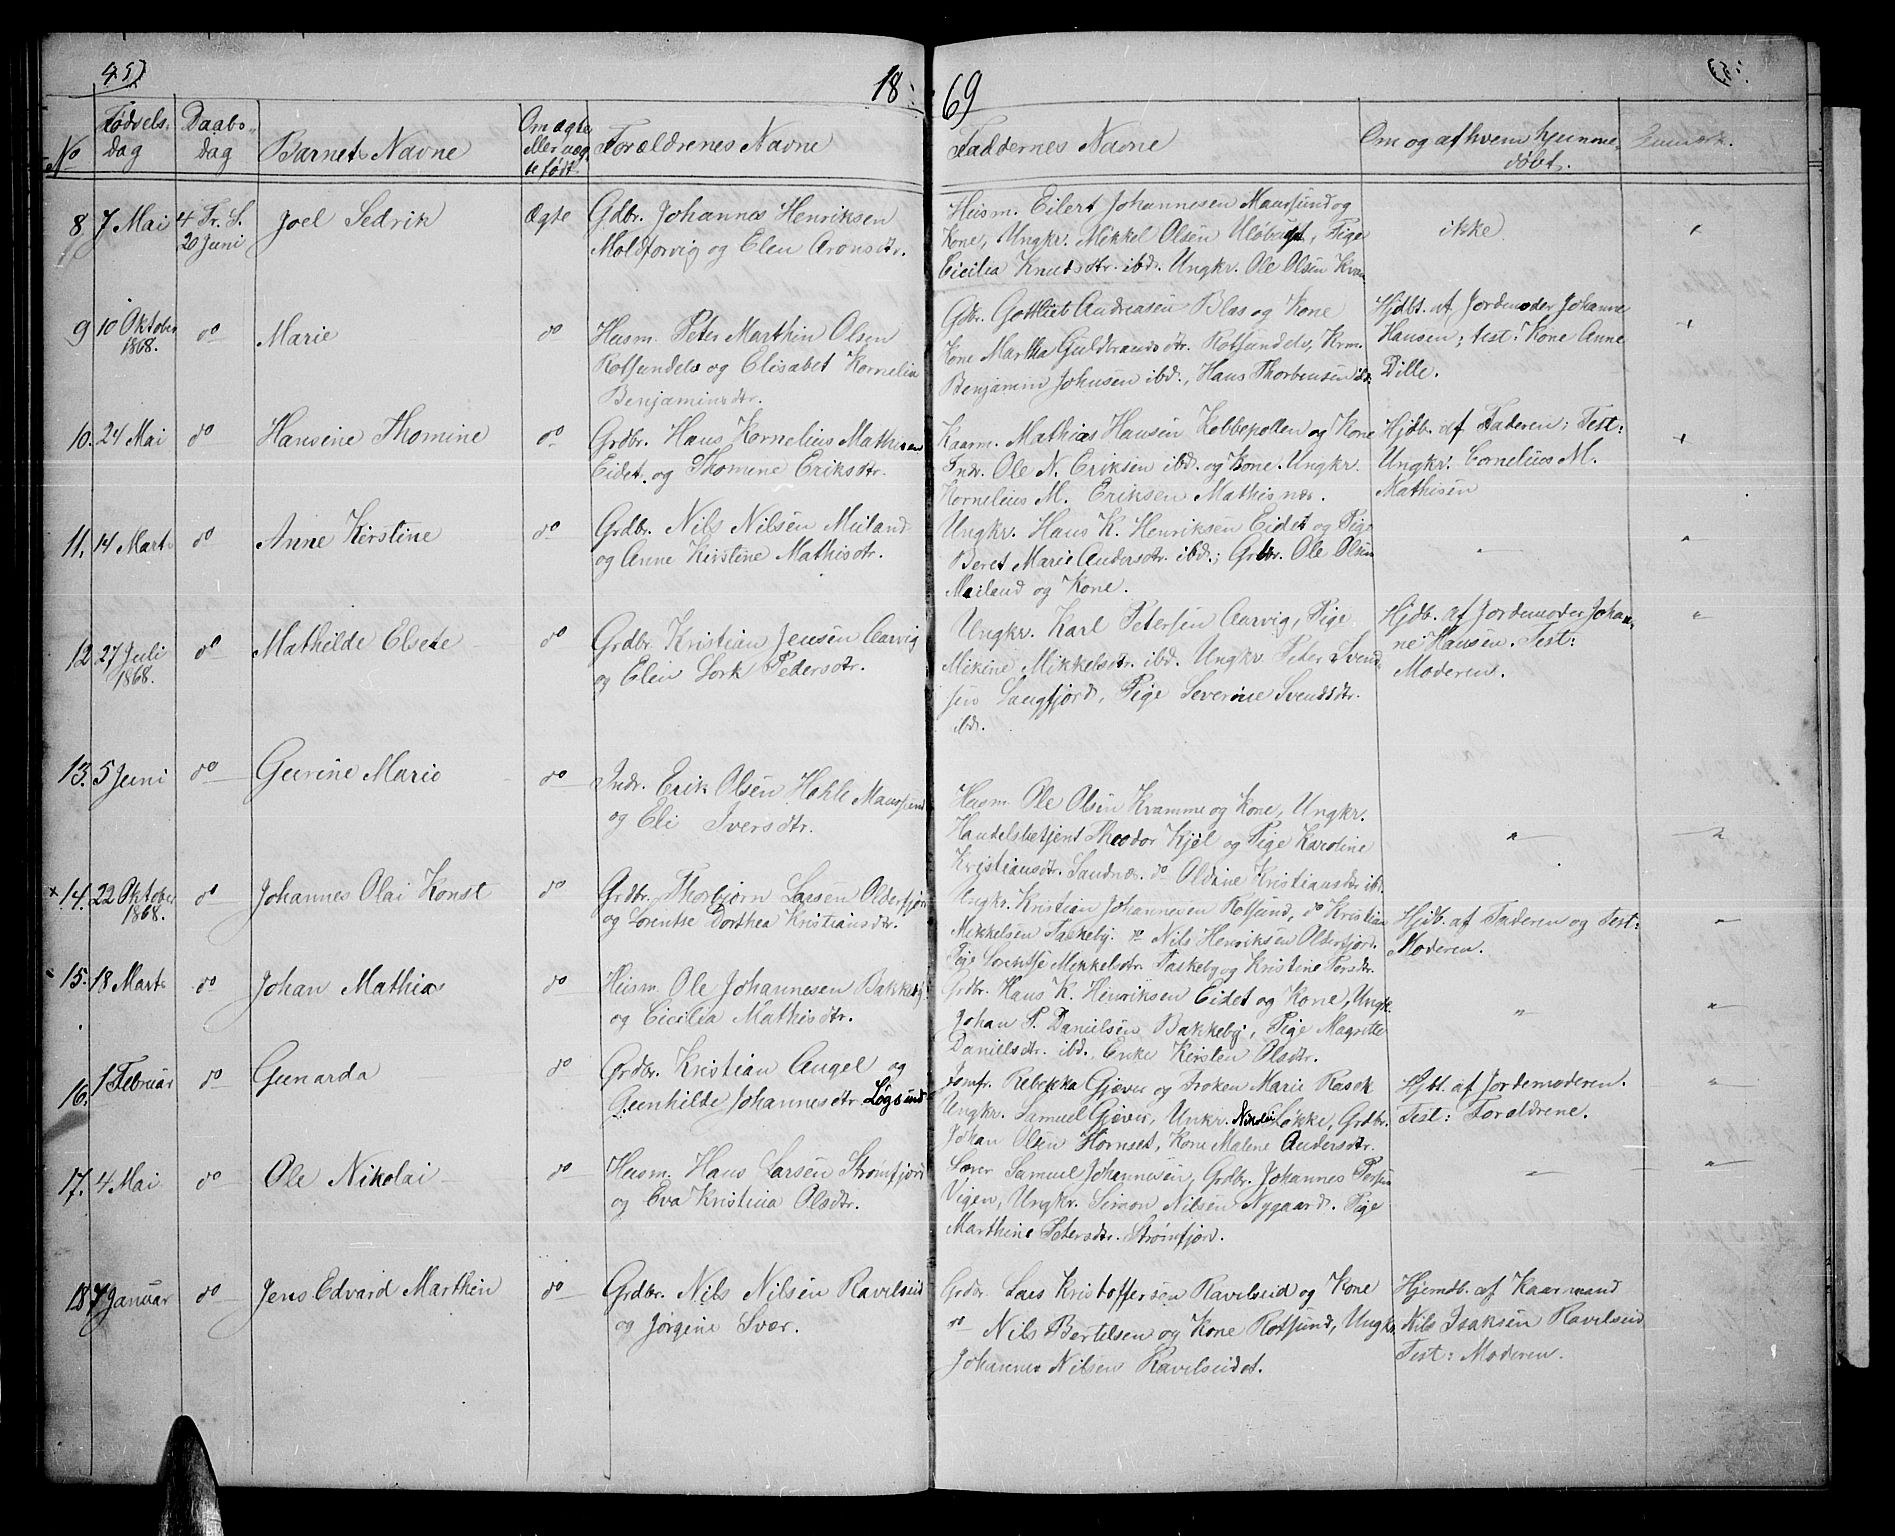 45)
18 69
No
Fødsels-
dag
Daabs-
dag
Barnets Navne
Om ægte
eller uæg
te født
Forældrenes Navne
Faddernes Navne
Om og af hvem hjemme
døbt.
8 7 Mai 4 Tr. S.
20 Juni
Joel Sedrik
Ægte
Gdbr. Johannes Henriksen
Moldforvig og Elen Aronsdtr.
Husm. Eilert Johannesen Maursund og
Kone, Ungkr. Mikkel Olsen Uløbugt, Pige
Cicilia Knudsdtr. ibd. Ungkr. Ole Olsen
ikke
"
9 10 Oktober
1868.
do
Marie
do
Husm. Peter Marthin Olsen
Rotsundelv og Elisabet Kornelia
Benjaminsdtr.
Gdbr. Gottlieb Andreasen Blas og Kone
Kone Martha Guldbrandsdtr. Rotsundelv, Krm.
Benjamin Johnsen ibd., Hans Thorbensen ibd.
Hjdbt. af Jordemoder Johanne
Hansen; test: Kone Anne
Dille.
10. 24 Mai do
Hansine Thomine
do
Grdbr. Hans Kornelius Mathisen
Eidet. og Thomine Eriksdtr.
Kaarm. Mathias Hansen Kobbepollen og Kone
Indr. Ole N. Eriksen ibd. og Kone. Ungkr.
Kornelius M. Eriksen Mathisnæs.
Hjdb. af Faderen; Test:
Ungkr. Cornelius M.
Mathisen
11. 14 Marts do
Anne Kirstine
do
Grdbr. Nils Nilsen Meiland
og Anne Kirstine Mathisdtr.
Ungkr. Hans K. Henriksen Eidet og Pige
Beret Marie Andersdtr. ibd.; Grdbr. Ole Olsen
Meiland og Kone.
"
"
12 27 Juli
1868.
do
Mathilde Elsete
do
Grdbr. Kristian Jensen Aarvig
og Elen Lork Pedersdtr.
Ungkr. Karl Petersen Aarvig, Pige
Mikine Mikkelsdtr. ibd. Ungkr. Peter Svend
sen Langfjord, Pige Severine Svendsdtr.
ibd.
Hjdb. af Jordemoder Johan-
ne Hansen. Test:
Moderen.
"
13. 5 Juni do
Gurine Marie
do
Indr. Erik Olsen Hahle Maursund
og Eli Iversdtr.
Husm. Ole Olsen Kramme og Kone, Ungkr.
Handelsbetjent Theodor Kjel og Pige Karoline
Kristiansdtr. Sandnæs. do Oldine Kristiansdtr ibd.
"
"
x 14. 22 Oktober
1868.
do
Johannes Olai Konst
do
Grdbr. Thorbjørn Larsen Olderfjord
og Lorentse Dorthea Kristiansdtr.
Ungkr. Kristian Johannesen Rotsund, do Kristian
Mikkelsen Taskeby. do Nils Henriksen Olderfjord.
Pige Lorentse Mikkelsdtr. Taskeby og Kristine Persdtr.
Hjdb. af Faderen og Test:
Moderen.
"
15. 18 Marts do
Johan Mathias
do
Husm. Ole Johannesen Bakkeby
og Cicilia Mathisdtr.
Grdbr. Hans K. Henriksen Eidet og Kone, Ungk.
Johan P. Danielsen Bakkeby, Pige Magrette
Danielsdtr. ibd., Enke Kirsten Olsdtr.
"
"
16. 1 Februar do
Gunarda
do
Grdbr. Kristian Angel og
Gunhilde Johannesdtr. Løgsund
Jomfr. Rebekka Gjæver og Frøken Marie Rasch
Ungkr. Samuel Gjæver, Unkr. Nikolai Løkke, Grdbr.
Johan Olsen Hornset, Kone Malene Andersdtr.
Hjbt. af Jordemoderen.
Test: Forældrene.
"
17. 4 Mai do
Ole Nikolai
do
Husm. Hans Larsen Strømfjord
og Eva Kristina Olsdtr.
Lærer Samuel Johannesen, Grdbr. Johannes Persen
Vigen, Ungkr. Simon Nilsen Nygaard. Pige
Marthine Petersdtr. Strømfjord.
"
"
18 7 Januar do
Jens Edvard Marthin
do
Grdbr. Nils Nilsen Ravelseid
og Jørgine Svær.
Grdbr. Lars Kristoffersen Ravelseid og Kone
do Nils Bertelsen og Kone Rotsund, Ungkr.
Johannes Nilsen Ravelseidet.
Hjemdb. af Kaarmand
Nils Isaksen Ravelseid
Test: Moderen.